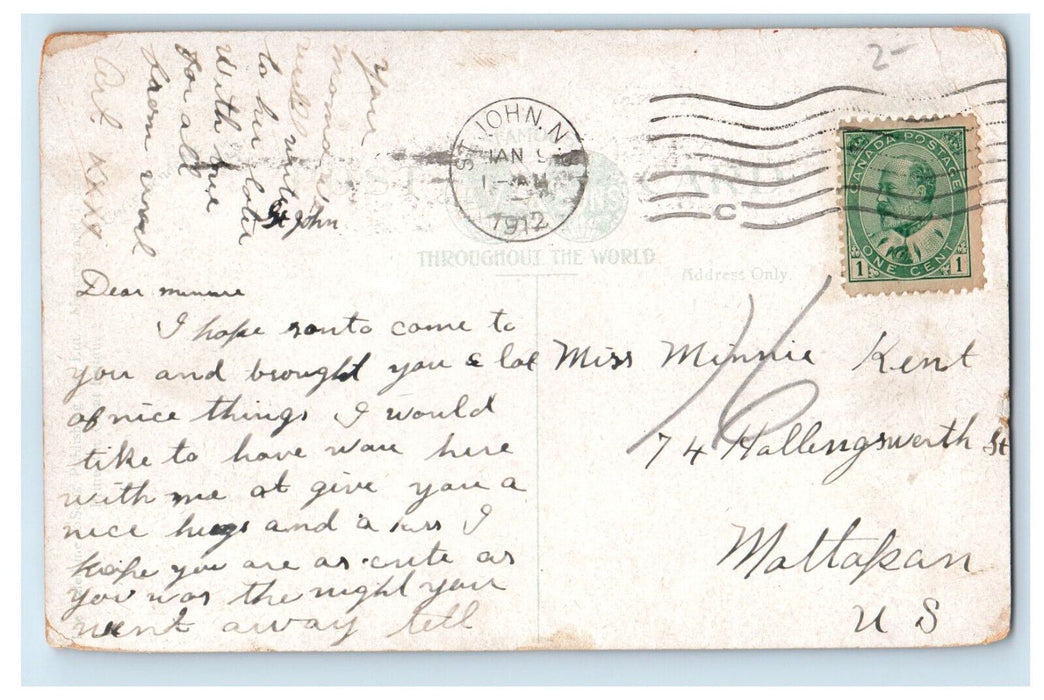 St John
Dear Minnie
I hope santa come to
you and brought you a lot
of nice things I would
like to have you here
with me at give you a
nice hugs and a kiss I
hope you are as cute as
you was the night you
went away tell
your
momma I
will write
to her later
with love
for all
from
Art xxx
ST. JOHN, N.B.
JAN 9
AM
1912
C
THROUGHOUT THE WORLD.
Address Only.
2-
CANADA POSTAGE
1 ONE CENT 1
16
Miss Minnie Kent
74 Hallingswerth St
Mattapan
U S